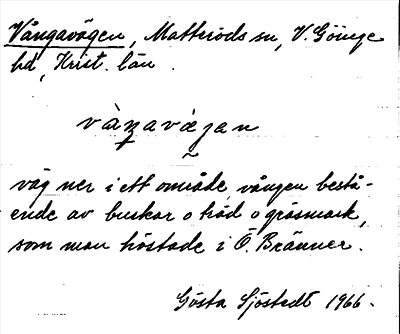 Vångavägen, Matteröds sn, V. Göinge
hd, Krist. län.
vàŋavæ̀gan
väg ner i ett område, vången bestå-
ende av buskar o träd o gräsmark,
som man höstade i Ö. Bränner.
Gösta Sjöstedt 1966.